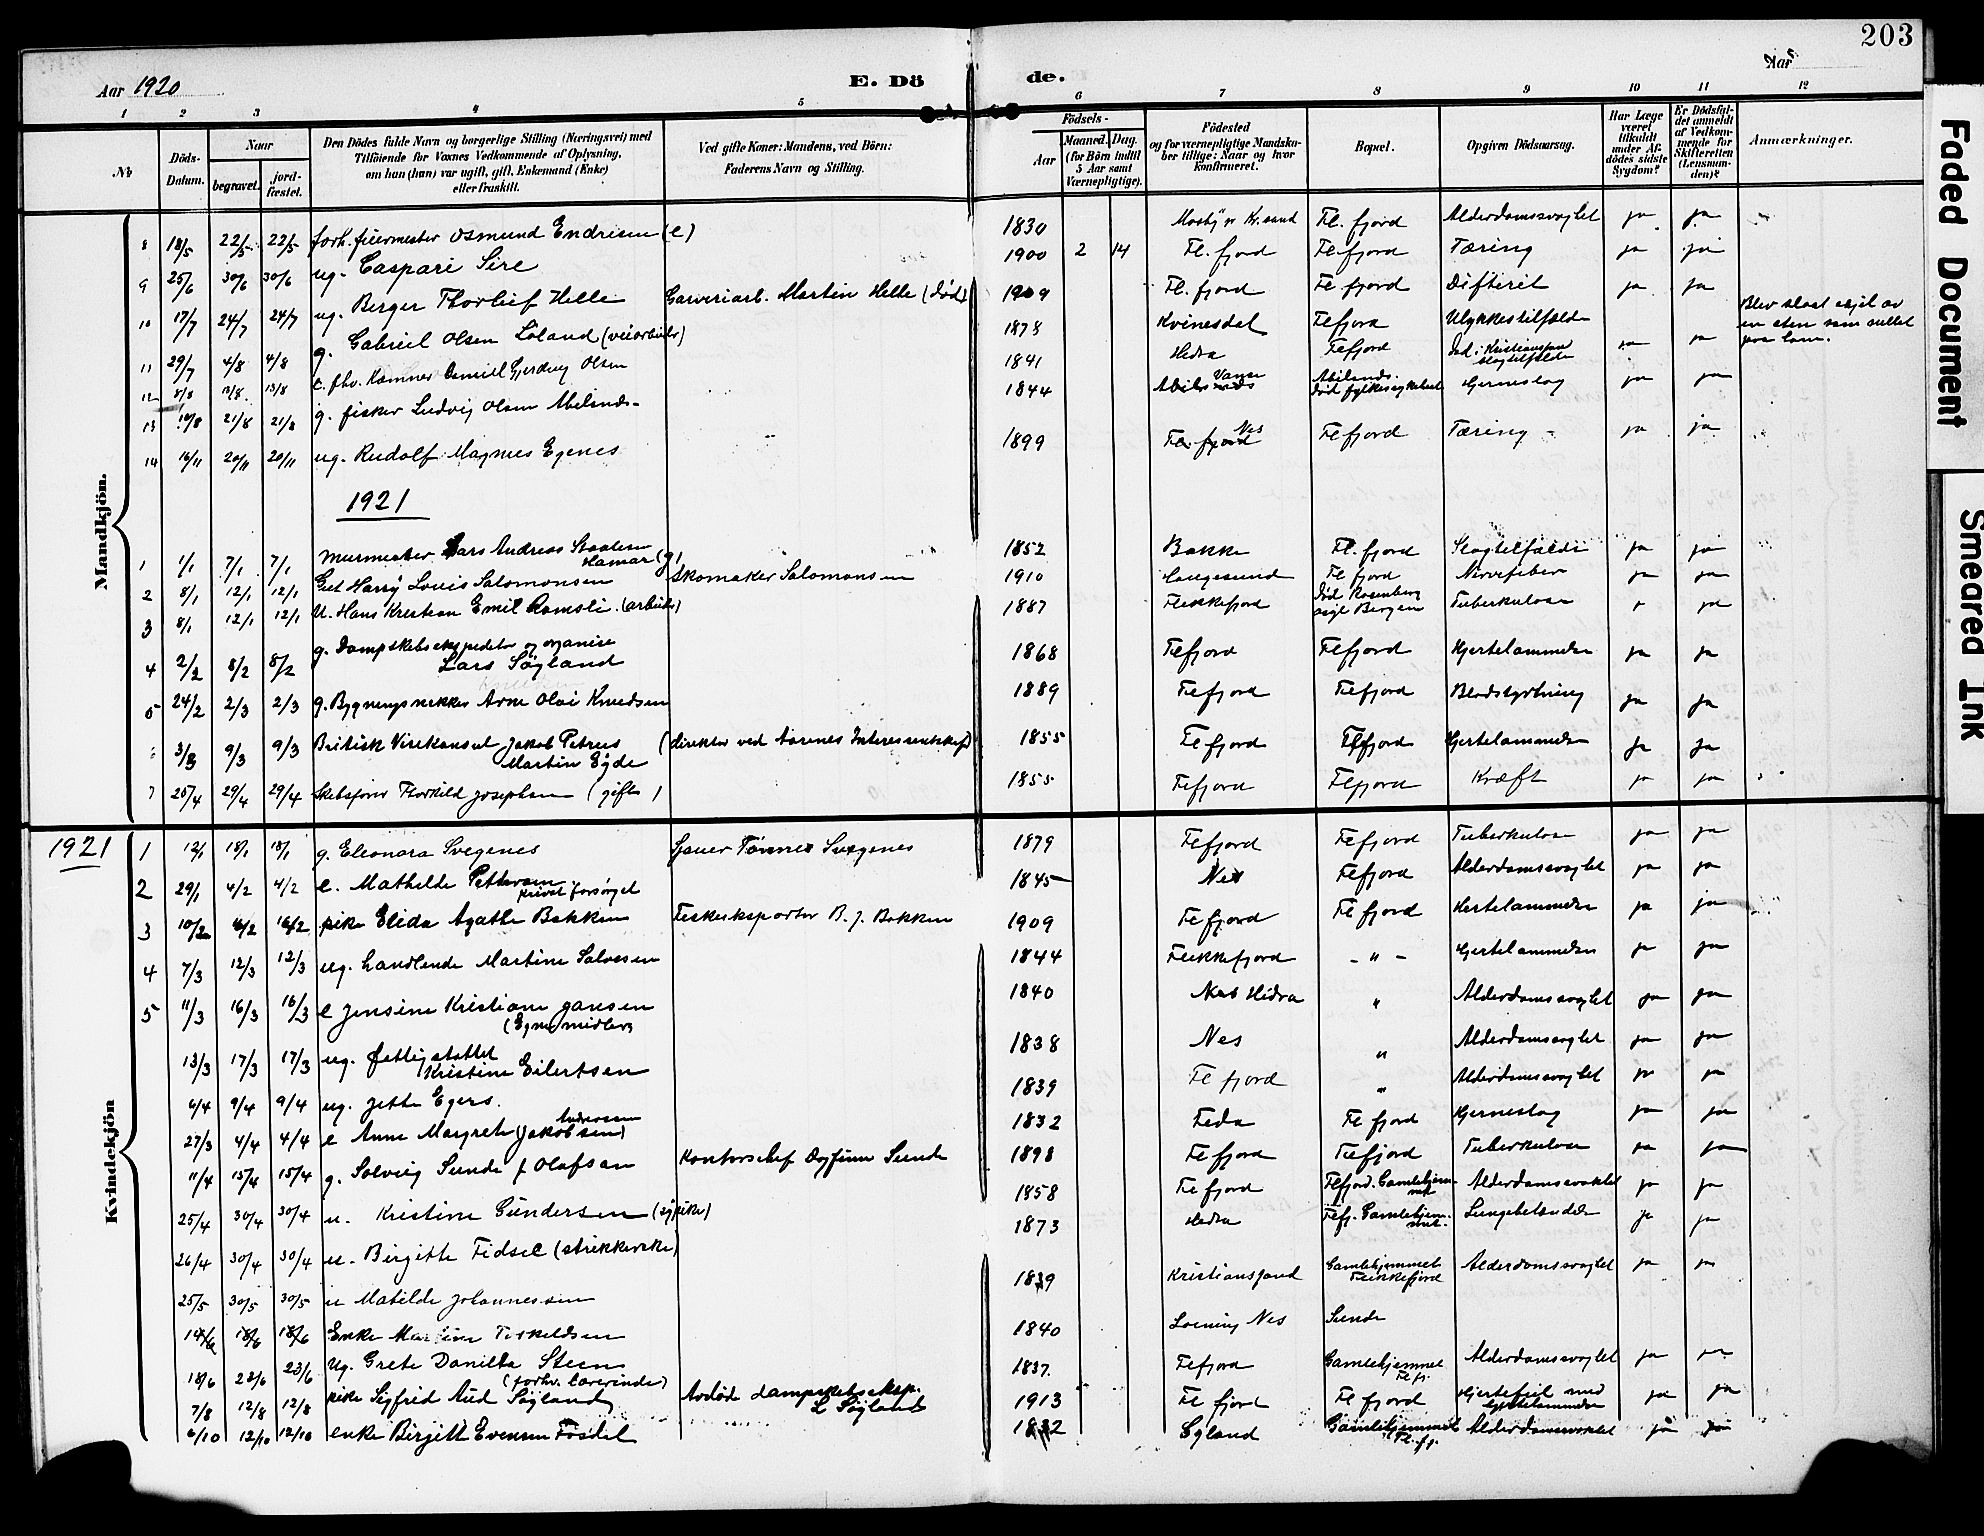 203
Aar 1920
E. Dö de.
Aar
1 2 3 4 5 6 7 8 9 10 11 12
No
Döds-Datum.
Naar
begravet.
jord-fæstet.
Den Dödes fulde Navn og borgerlige Stilling (Næringsvei) med
Tilföiende for Voxnes Vedkommende af Oplysning,
om han (hun) var ugift, gift, Enkemand (Enke)
eller fraskilt.
Ved gifte Koner: Mandens, ved Börn:
Faderens Navn og Stilling.
Födsels-
Aar
Maaned. Dag.
(for Börn indtil
5 Aar samt
Værnepligtige).
Födested
og for værnepligtige Mandska-
ber tillige: Naar og hvor
konfirmeret.
Bopæl.
Opgiven Dödsaarsag.
Har Læge
været
tilkaldt
under Af-
dödes sidste
Sygdom?
Er Dödsfal-
det anmeldt
af Vedkom-
mende for
Skifteretten
(Lensman-
den)?
Anmærkninger.
Mandkjön.
8 18/5 22/5 22/5 forh. fuermester Osmund Endresen (e) 1830 Mosby pr Kr.sand Fl. fjord Alderdomssvaghet ja ja
9 25/6 30/6 30/6 ug. Caspari Sire 1900 2 14 Fl. fjord Fl fjord Tæring ja ja
10 17/7 24/7 24/7 ug. Berger Thorleif Helle Garveriarb. Martin Helle (död) 1909 Fl. fjord Fl fjord Difterit ja ja
11 29/7 4/8 4/8 g. Gabriel Olsen Løland (veiarbeider) 1878 Kvinesdal Flfjord Ulykkestilfælde ja Blev slaat ihjel av
en sten som rullet
paa ham.
12 8/8 13/8 13/8 e. fhv. Kæmner Daniel Gjerding Olsen 1841 Hedra Flfjord Död i Kristianssand
slagtilfælde ja ja
13 18/8 21/8 21/8 g. fisker Ludvig Olsen Abelsnes 1844 Abelsnes Vanse Abelsnes.
död fylkessykehuset Hjerneslag ja ja
14 16/11 20/11 20/11 ug. Rudolf Magnus Egenes 1899 Fl. fjord Nes Flfjord Tæring ja ja
1921
1 1/1 7/1 7/1 Murmester Lars Andreas Staalesen
Hamar (g) 1852 Bakke Fl. fjord Slagtilfælde ja ja
2 8/1 12/1 12/1 Gut Harry Louis Salomonsen Skomaker Salomonsen 1910 Haugesund Fl fjord Nervefeber ja ja
3 8/1 12/1 12/1 U. Hans Kristian Emil Romsli (arbeider) 1887 Flekkefjord Död Rosenberg
asyl Bergen Tuberkulose ja
4 2/2 8/2 8/2 g. Dampskibsekspeditør og organist
Lars Søyland 1868 Flfjord Flfjord Hjertelammelse ja ja
5 24/2 2/3 2/3 g. Bygningssnekker Arne Olai Knudsen 1889 Flfjord Flfjord Blodstyrtning ja ja
3/3 9/3 9/3 Britisk Visekonsul Jakob Petrus
Martin Eyde (direktør ved Aarenes Interessentskap) 1855 Flfjord Flfjord Hjertelammelse ja ja
7 25/4 29/4 29/4 Skibsfører Thorkild Josephsen (gift) 1855 Flfjord Flfjord Kræft ja ja
Kvindekjön
1921 1 12/1 18/1 18/1 g. Eleonora Svegenes Sjauer Tønnes Svegenes 1879 Flfjord Flfjord Tuberkulose ja ja
2 29/1 4/2 4/2 e. Mathilde Pettersen
privat forsørget 1845 Nes Flfjord Alderdomssvaghet ja ja
3 10/2 16/2 16/2 pike Elida Agathe Bakken Fiskeeksportør B. J. Bakken 1909 Flfjord Fl fjord Hjertelammelse ja ja
4 7/3 12/3 12/3 ug. handlende Martine Salvesen 1844 Flekkefjord - " - Hjertelammelse ja ja
5 11/3 16/3 16/3 e Jensine Kristiane Jansen
(Egne midler) 1840 Nes Hidra " Alderdomssvaghet ja ja
13/3 17/3 17/3 ug. fattigstøttet
Kristine Eilertsen 1838 Nes " Alderdomssvaghet ja ja
6/4 9/4 9/4 ug. Jette Egers. 1839 Fl fjord " Alderdomssvaghet ja ja
27/3 4/4 4/4 e Anne Margrete (Jakobsen) Andreassen 1832 Feda Fl fjord Hjerneslag ja ja
11/4 15/4 15/4 g. Solveig Sunde f Olafsen Kontorchef Dagfinn Sunde 1898 Flfjord Flfjord Tuberkulose ja ja
25/4 30/4 30/4 u. Kristine Gundersen (sypike) 1858 Flfjord Flfjord. Gamlehjem-
met Alderdomssvaghet ja ja
26/4 30/4 30/4 u. Birgitte Fidsel (strikkerske) 1873 Hedra Flfj. Gamlehjem-
met. Lungebetændelse ja ja
25/5 30/5 30/5 u Matilde Johannessen 1839 Kristianssand Gamlehjemmet
Flekkefjord Alderdomssvaghet ja ja
14/6 18/6 18/6 Enke Martine Torkeldsen 1840 Loening Nes Sunde
18/6 23/6 23/6 Ug. Grete Danilla Steen
(forhv. lærerinde) 1837. Flfjord Gamlehjemmet
Fl fj. Alderdomssvaghet ja ja
7/8 12/8 12/8 pike Sigfrid Aud Søyland Avdöd dampskibseksp.
L Søyland 1913 Fl fjord Fl fjord Hjertefeil med
hjertelammelse ja ja
6/10 12/10 12/10 enke Birgitt Evensen Fosdal 1832 Egland Gamlehjemmet
Fl. fj. Alderdomssvaghet ja ja
Faded Document
Smeared Ink